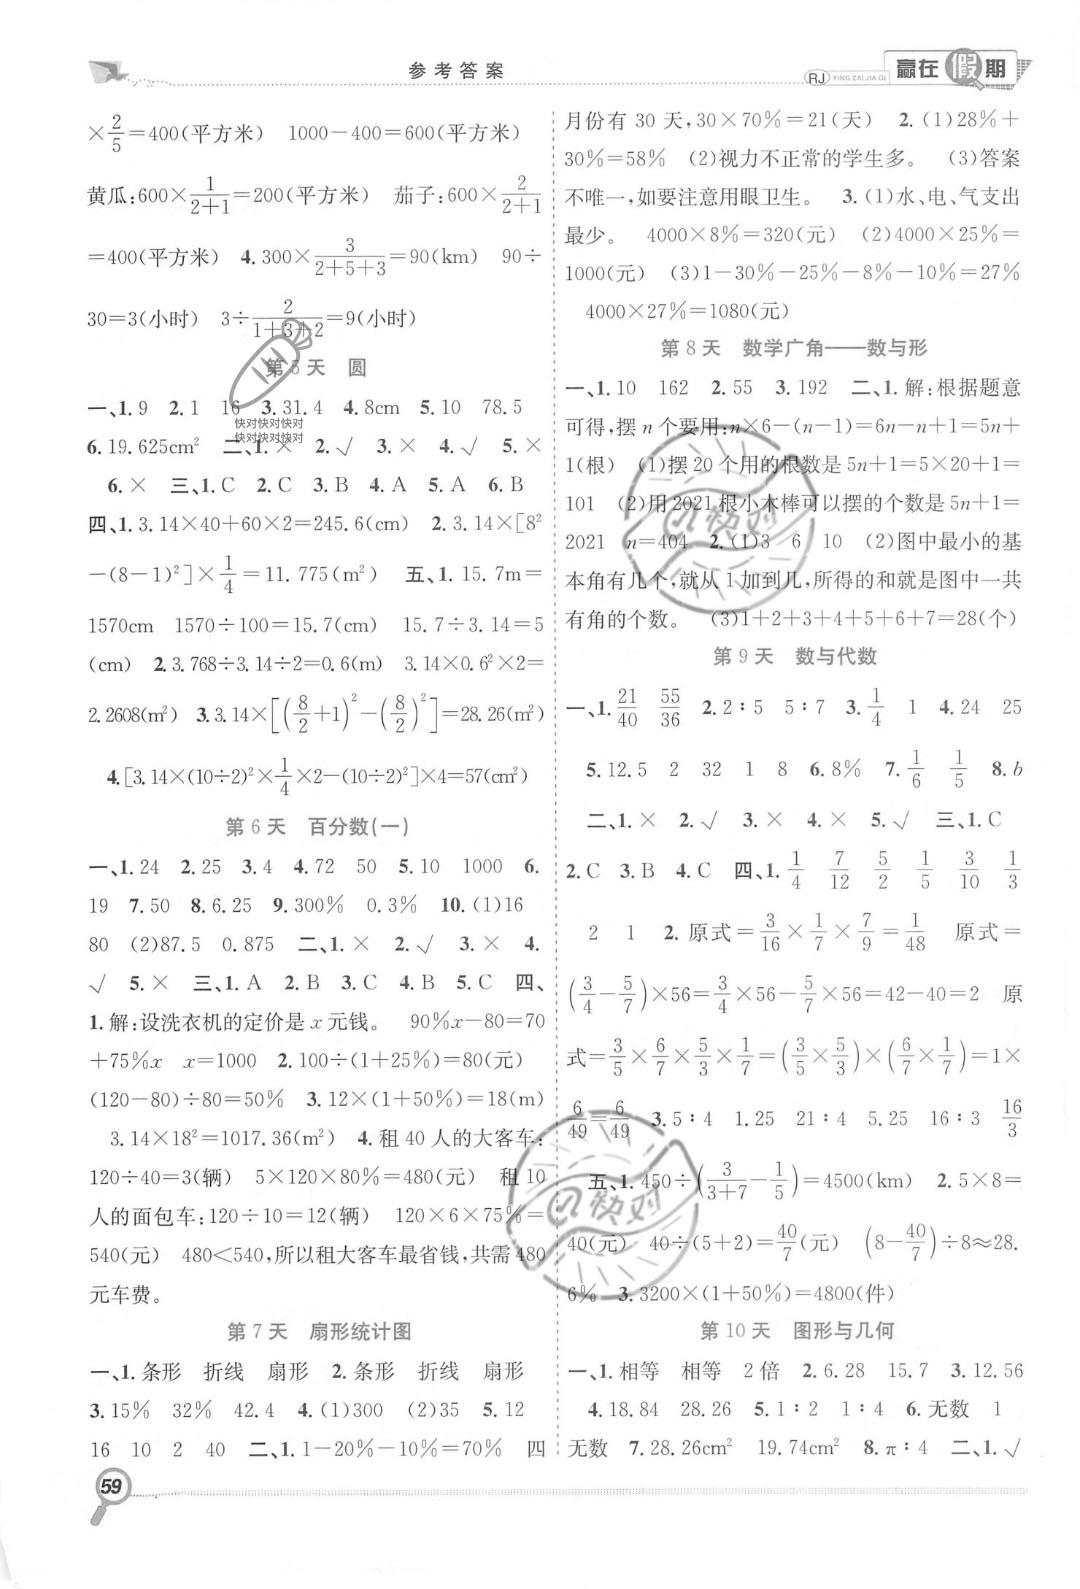 参考答案
RJ YING ZAI JIA QI
赢在假期
×2/5=400(平方米) 1000-400=600(平方米)
黄瓜:600×1/(2+1)=200(平方米) 茄子:600×2/(2+1)
=400(平方米) 4.300×3/(2+5+3)=90(km) 90÷
30=3(小时) 3÷2/(1+3+2)=9(小时)
第5天 圆
一、1.9 2.1 16 3.31.4 4.8cm 5.10 78.5
6.19.625cm² 二、1.× 2.√ 3.× 4.√ 5.×
6.× 三、1.C 2.C 3.B 4.A 5.A 6.B
四、1.3.14×40+60×2=245.6(cm) 2.3.14×[8²
-(8-1)²]×1/4=11.775(m²) 五、1.15.7m=
1570cm 1570÷100=15.7(cm) 15.7÷3.14=5
(cm) 2.3.768÷3.14÷2=0.6(m) 3.14×0.6²×2=
2.2608(m²) 3.3.14×[(8/2+1)²-(8/2)²]=28.26(m²)
4.[3.14×(10÷2)²×1/4×2-(10÷2)²]×4=57(cm²)
第6天 百分数(一)
一、1.24 2.25 3.4 4.72 50 5.10 1000 6.
19 7.50 8.6.25 9.300% 0.3% 10.(1)16
80 (2)87.5 0.875 二、1.× 2.√ 3.× 4.
√ 5.× 三、1.A 2.B 3.C 4.B 5.C 四、
1.解:设洗衣机的定价是x元钱。 90%x-80=70
+75%x x=1000 2.100÷(1+25%)=80(元)
(120-80)÷80=50% 3.12×(1+50%)=18(m)
3.14×18²=1017.36(m²) 4.租40人的大客车:
120÷40=3(辆) 5×120×80%=480(元) 租10
人的面包车:120÷10=12(辆) 120×6×75%=
540(元) 480<540,所以租大客车最省钱,共需480
元车费。
第7天 扇形统计图
一、1.条形 折线 扇形 2.条形 折线 扇形
3.15% 32% 42.4 4.(1)300 (2)35 5.12
16 10 2 40 二、1.1-20%-10%=70% 四
月份有30天,30×70%=21(天) 2.(1)28%+
30%=58% (2)视力不正常的学生多。 (3)答案
不唯一,如要注意用眼卫生。 3.(1)水、电、气支出
最少。 4000×8%=320(元) (2)4000×25%=
1000(元) (3)1-30%-25%-8%-10%=27%
4000×27%=1080(元)
第8天 数学广角——数与形
一、1.10 162 2.55 3.192 二、1.解:根据题意
可得,摆n个要用:n×6-(n-1)=6n-n+1=5n+
1(根) (1)摆20个用的根数是5n+1=5×20+1=
101 (2)用2021根小木棒可以摆的个数是5n+1=
2021 n=404 2.(1)3 6 10 (2)图中最小的基
本角有几个,就从1加到几,所得的和就是图中一共
有角的个数。 (3)1+2+3+4+5+6+7=28(个)
第9天 数与代数
一、1.21/40 55/36 2.2∶5 5∶7 3.1/4 1 4.24 25
5.12.5 2 32 1 8 6.8% 7.1/6 1/5 8.b
二、1.× 2.√ 3.× 4.× 5.√ 三、1.C
2.C 3.B 4.C 四、1.1/4 7/12 5/2 1/5 3/10 1/3
2 1 2.原式=3/16×1/7×7/9=1/48 原式=
(3/4-5/7)×56=3/4×56-5/7×56=42-40=2 原
式=3/5×6/7×5/3×1/7=(3/5×5/3)×(6/7×1/7)=1×
6/49=6/49 3.5∶4 1.25 21∶4 5.25 16∶3 16/3
五、1.450÷(3/(3+7)-1/5)=4500(km) 2.5×8=
40(元) 40÷(5+2)=40/7(元) (8-40/7)÷8≈28.
6% 3.3200×(1+50%)=4800(件)
第10天 图形与几何
一、1.相等 相等 2倍 2.6.28 15.7 3.12.56
4.18.84 28.26 5.1∶2 1∶4 6.无数 1
无数 7.28.26cm² 19.74cm² 8.π∶4 二、1.√
59
快对快对快对
快对快对快对
快对
快对